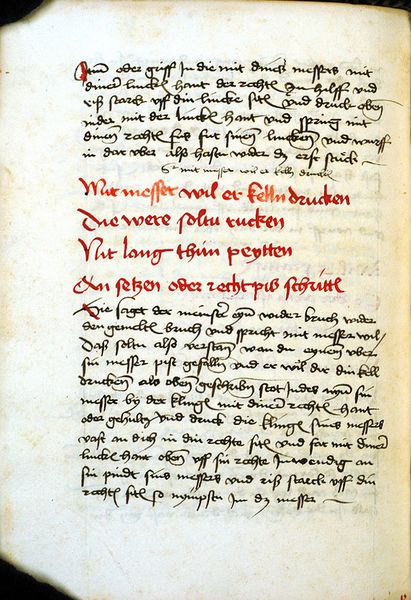 Itm̄ oder griff In die mit dines messers mit
diner linck hant der recht zu hilff und
riß starck uff din lincke sitt und druck oben
nider mit der linck hant und spring mit
dinem recht fůß fur sinen lincken und wurf
in dar uber also hastu wider dz erst stuck
S mit messer wil er kelln druck
Mit messer wil er kelln drucken
Die were soltu rucken
Nit lang thün peytten
An setzen oder recht pis schritt
Die saget der meinster eyn wider bruch wider
den gemelt bruch und spricht mit messer wil
Daß soltu also verstan wan du eynem uber
sin messer pist gefallen und er wil dir din kell
drucken als oben geschriben stet Indes nym sin
messer by der kling mit diner recht hant
oder gehultz und druck die kling sins messers
vast an dich in din rechte sitt und far mit diner
linck hant oben uff sin rechte Inwendig an
sin pindt sins messers und riß starck uff din
recht sitt so nympstu Im dz messer